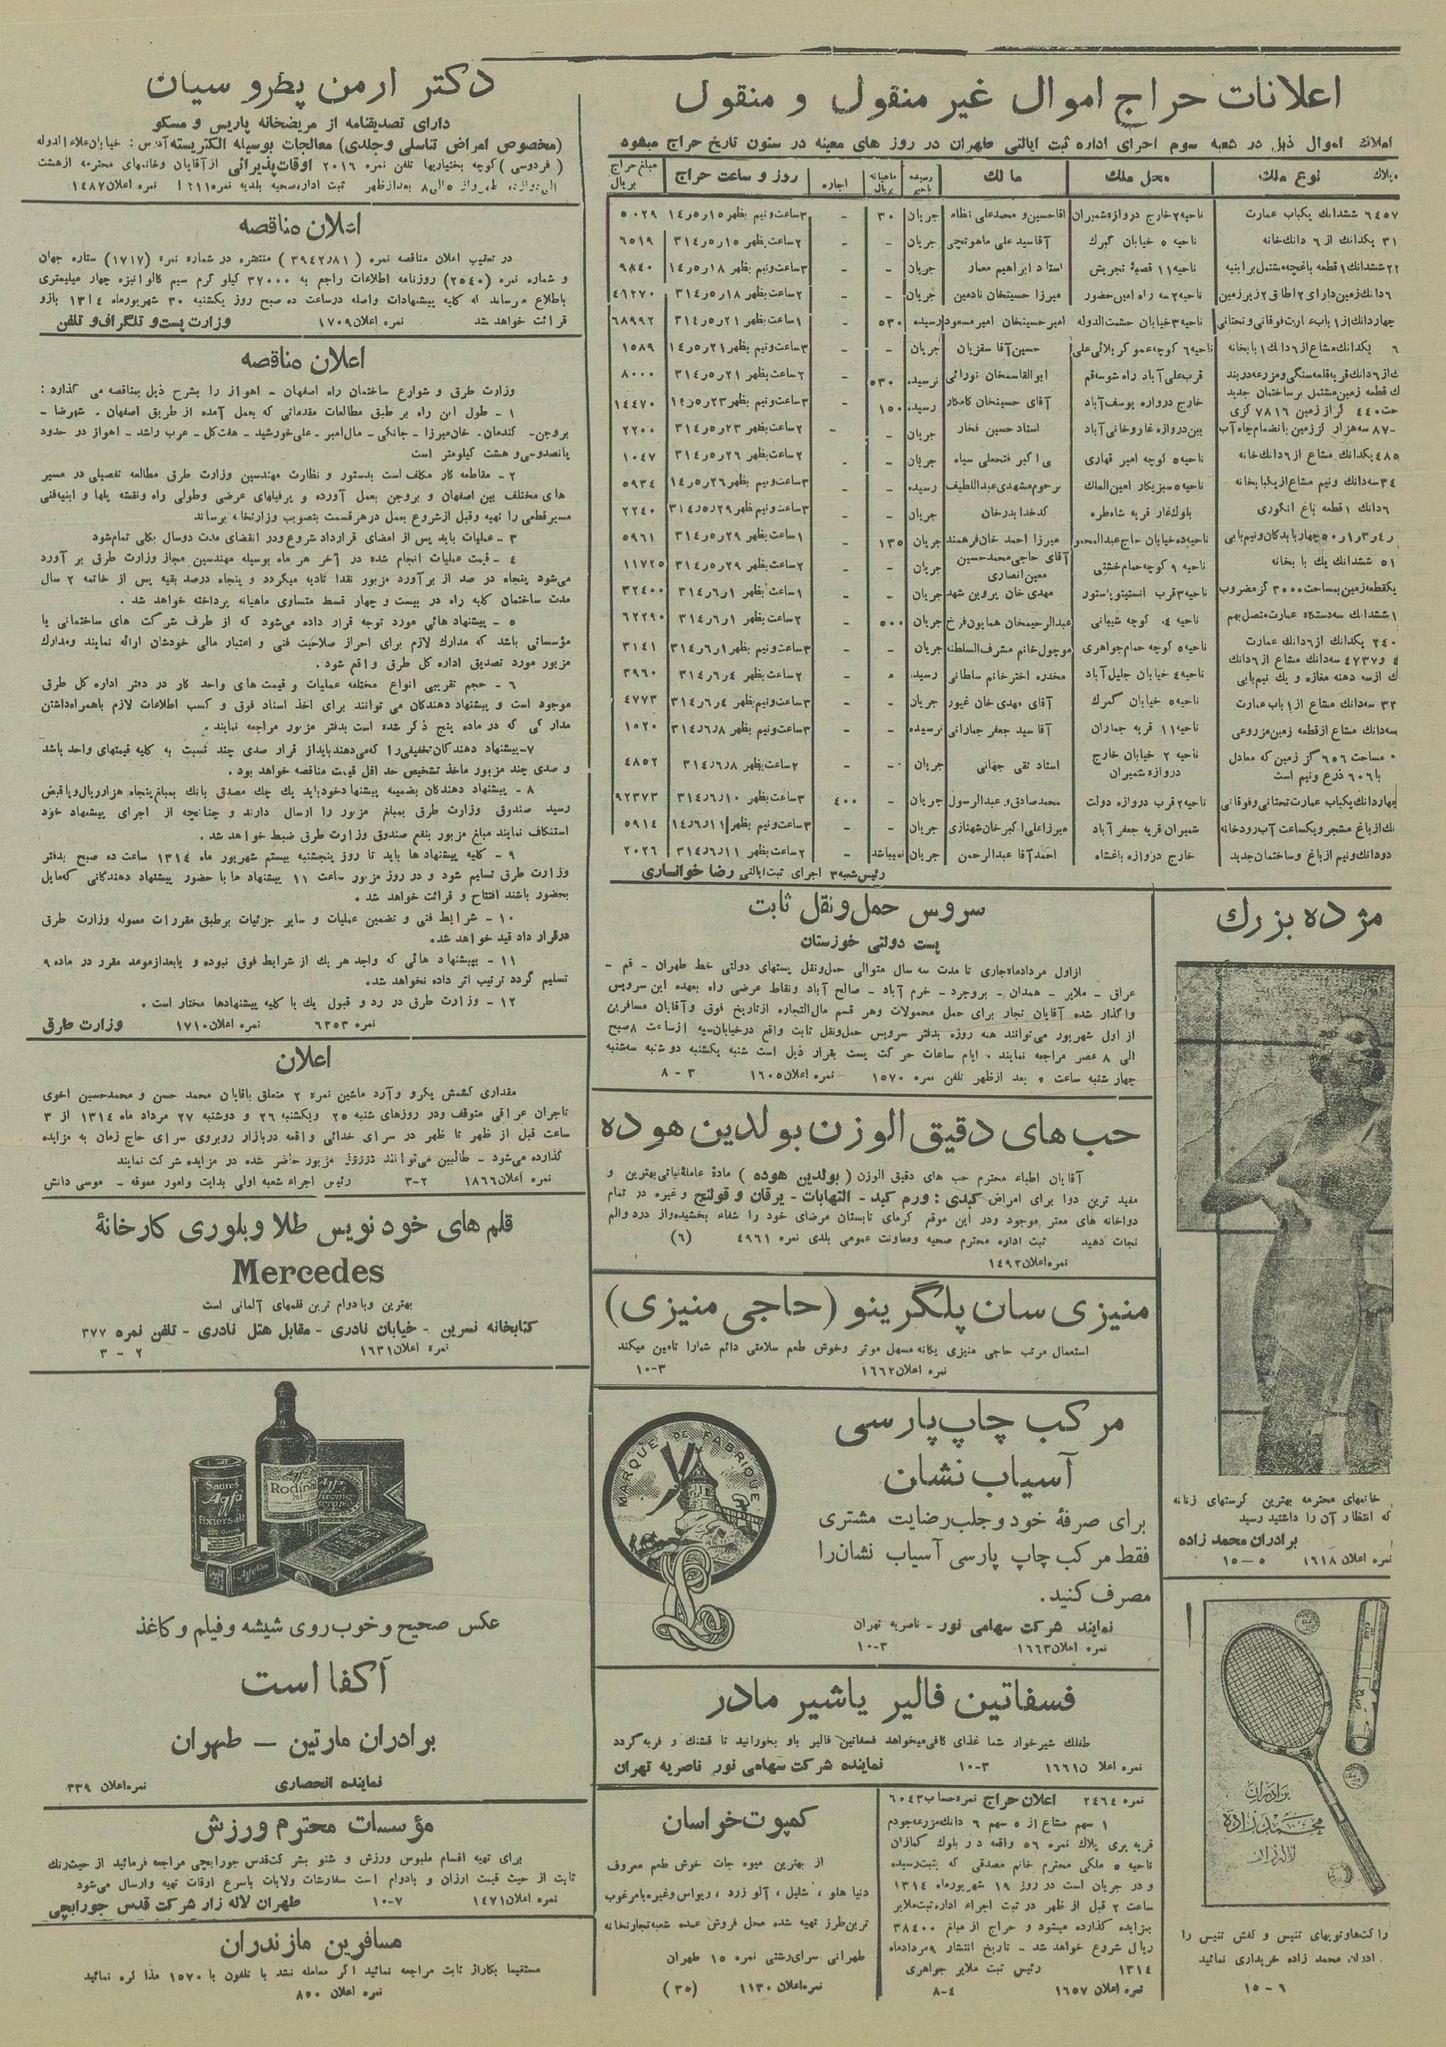 اعلانات حراج اموال غیر منقول و منقول
املاک اموال ذیل در شعبه سوم اجرای اداره ثبت ایالتی طهران در روز های معینه در ستون تاریخ حراج میشود
پلاک نوع ملک محل ملک مالک رسیده یا خیر ماهیانه بریال اجاره روز و ساعت حراج مبلغ حراج بریال
۶۴۵۷ ششدانک یکباب عمارت ناحیه ۲ خارج دروازه شمیران آقاحسین و محمدعلی نظام جریان ۳۰ - ۳ساعت ونیم بظهر ۱۵ر۵ر۱۴ ۵۰۲۹
۳۱ یکدانک از ۶ دانک خانه ناحیه ۵ خیابان گمرک آقاسید علی ماهوتچی جریان - - ۲ساعت بظهر ۱۵ر۵ر۳۱۴ ۶۵۱۹
۲۲ ششدانک ۱ قطعه باغچه مشتمل بر ابنیه ناحیه ۱۱ قصبه تجریش استاد ابراهیم معمار جریان - - ۳ساعت ونیم بظهر ۱۸ر۵ر۱۴ ۹۸۴۰
۶دانک زمین دارای ۲ اطاق ۲ زیر زمین ناحیه ۲ سه راه امین حضور میرزا حسینخان نادمین جریان - - ۲ساعت بظهر ۱۸ر۵ر۳۱۴ ۴۶۲۷۰
چهاردانک از ۱ باب عمارت فوقانی و تحتانی ناحیه ۳ خیابان حشمت الدوله امیر حسینخان امیر مسعود رسیده ۵۳۰ - ۱ساعت بظهر ۲۱ر۵ر۳۱۴ ۶۸۹۹۲
۶ یکدانک مشاع از ۶ دانک ۱ بابخانه ناحیه ۶ کوچه عمو کربلائی علی حسین آقا سقزیان جریان - - ۳ساعت ونیم بظهر ۲۱ر۵ر۱۴ ۱۵۸۹
ک از ۶ دانک قریه قلعه سنگی و مزرعه دربند قرب علی آباد راه شوسه قم ابوالقاسمخان نورائی نرسیده ۵۳۰ - ۲ساعت بظهر ۲۱ر۵ر۳۱۴ ۸۰۰۰
ک قطعه زمین مشتمل بر ساختمان جدید خارج دروازه یوسف آباد آقای حسینخان کامکار رسیده ۱۵۰ - ۳ساعت ونیم بظهر ۲۳ر۵ر۱۴ ۱۴۴۷۰
حت ۴۴۰ گز از زمین ۷۸۱۶ گزی
۸۷۰ سه هزار گز زمین بانضمام چاه آب بین دروازه غار و خانی آباد استاد حسین فخار جریان - - ۲ساعت بظهر ۲۳ر۵ر۳۱۴ ۲۲۰۰
۴۸۵ یکدانک مشاع از ۶ دانک خانه ناحیه ۵ کوچه امیر قهاری ی اکبر فتحعلی سیاه جریان - - ۲ساعت بظهر ۲۶ر۵ر۳۱۴ ۱۰۴۷
۳۴ سه دانک ونیم مشاع از یکبابخانه ناحیه ۵ سبزیکار امین الملک مرحوم مشهدی عبداللطیف رسیده - - ۳ساعت ونیم بظهر ۲۶ر۵ر۱۴ ۵۹۳۴
۶دانک ۱ قطعه باغ انگوری بلوک غار قریه شاه طره کدخدا بدرخان جریان - - ۳ساعت ونیم بظهر ۲۹ر۵ر۳۱۴ ۲۲۴۰
میرزا احمد خان فرهمند جریان ۱۳۵ - ۱ساعت بظهر ۲۹ر۵ر۳۱۴ ۵۹۶۱
۵۱ ششدانک یک با بخانه ناحیه ۹ کوچه حمام خشتی آقای حاجی محمد حسین معین انصاری جریان - - ۲ساعت بظهر ۲۹ر۵ر۳۱۴ ۱۱۷۲۵
یکقطعه زمین بمساحت ۳۰۰۰ گز مضروب ناحیه ۳ قرب انستیتو پاستور مهدی خان پروین شهد جریان - - ۱ساعت بظهر ۱ر۶ر۳۱۴ ۳۲۴۰۰
۱ ششدانک سه دستگاه عمارت متصل بهم ناحیه ۴ کوچه شیبانی عبدالرحیمخان همایون فرخ جریان ۵۰۰ - ۲ساعت بظهر ۱ر۶ر۳۱۴ ۶۲۲۹۰
۲۴۰ یکدانک از ۶ دانک عمارت ناحیه ۵ کوچه حمام جواهری موچول خانم مشرف السلطنه جریان - - ۳ساعت ونیم بظهر ۱ر۶ر۳۱۴ ۳۱۴۱
۴ و ۴۷۳۷ سه دانک مشاع از ۶ دانک ناحیه ۴ خیابان جلیل آباد مخدره اختر خانم سلطانی رسیده - - ۲ساعت بظهر ۴ر۶ر۳۱۴ ۳۹۶۰
ک از سه دهنه مغازه و یک نیم بابی
۳۳ سه دانک مشاع از ۱ باب عمارت ناحیه ۵ خیابان گمرک آقای مهدی خان غیور جریان - - ۳ساعت ونیم بظهر ۴ر۶ر۳۱۴ ۴۷۷۳
سه دانک مشاع از قطعه زمین مزروعی ناحیه ۱۱ قریه جماران آقا سید جعفر جمارانی نرسیده - - ۳ساعت ونیم بظهر ۸ر۶ر۳۱۴ ۱۰۲۰
مساحت ۶۵۶ گز زمین که معادل ناحیه ۲ خیابان خارج استاد تقی جهانی جریان - - ۲ساعت بظهر ۸ر۶ر۳۱۴ ۴۸۵۲
با ۶۰۶ ذرع ونیم است دروازه شمیران
چهاردانک یکباب عمارت تحتانی وفوقانی ناحیه ۲ قرب دروازه دولت محمدصادق و عبدالرسول جریان - ۴۰۰ ۳ساعت بظهر ۱۰ر۶ر۳۱۴ ۹۲۳۷۳
نک از باغ مشجر و یکساعت آب رودخانه شمیران قریه جعفر آباد میرزا علی اکبر خان شهنازی جریان - - ۳ساعت ونیم بظهر ۱۱ر۶ر۱۴ ۵۹۱۴
دودانک ونیم از باغ و ساختمان جدید خارج دروازه باغشاه احمد آقا عبدالرحمن جریان نمیباشد - ۲ساعت بظهر ۱۱ر۶ر۳۱۴ ۲۰۲۶
رئیس شعبه ۳ اجرای ثبت ایالتی رضا خوانساری
مژده بزرک
خانمهای محترمه بهترین کرستهای زنانه
که انتظار آن را داشتید رسید
برادران محمد زاده
نمره اعلان ۱۶۱۸ ۵ - ۱۵
برادران
محمد زاده
لاله زار
راکت ها و توپهای تنیس و کفش تنیس را
ادران محمد زاده خریداری نمائید
۹ - ۱۵
سرویس حمل و نقل ثابت
پست دولتی خوزستان
از اول مردادماه جاری تا مدت سه سال متوالی حمل و نقل پستهای دولتی خط طهران - قم -
عراق - ملایر - همدان - بروجرد - خرم آباد - صالح آباد و نقاط عرضی راه بعهده این سرویس
واگذار شده آقایان تجار برای حمل محمولات وهر قسم مال التجاره از تاریخ فوق و آقایان مسافرین
از اول شهریور می توانند همه روزه بدفتر سرویس حمل و نقل ثابت واقع در خیابان سپه از ساعت ۸ صبح
الی ۸ عصر مراجعه نمایند . ایام ساعات حرکت پست بقرار ذیل است شنبه یکشنبه دوشنبه سه شنبه
چهارشنبه ساعت ۴ بعد از ظهر تلفن نمره ۱۵۷۰ نمره اعلان ۱۶۰۵ ۳ - ۸
حب های دقیق الوزن بولدین هوده
آقایان اطباء محترم حب های دقیق الوزن ( بولدین هوده ) مادهٔ عاملهٔ نباتی بهترین و
مفید ترین دوا برای امراض کبدی : ورم کبد - التهابات - یرقان و قولنج و غیره در تمام
دواخانه های معتبر موجود و در این موقع گرمای تابستان مرضای خود را شفاء بخشیده و از درد و الم
نجات دهید ثبت اداره محترم صحیه و معاونت عمومی بلدی نمره ۴۹۶۱ (۶)
نمره اعلان ۱۴۹۲
منیزی سان پلگرینو (حاجی منیزی)
استعمال مرتب حاجی منیزی یگانه مسهل موثر و خوش طعم سلامتی دائم شما را تامین میکند
نمره اعلان ۱۶۶۲ ۳-۱۰
مرکب چاپ پارسی
آسیاب نشان
MARQUE DE FABRIQUE
برای صرفهٔ خود و جلب رضایت مشتری
فقط مرکب چاپ پارسی آسیاب نشان را
مصرف کنید.
نمایند شرکت سهامی نور - ناصریه تهران
نمره اعلان ۱۶۶۳ ۳-۱۰
فسفاتین فالیر یا شیر مادر
طفلک شیر خوار شما غذای کافی میخواهد فسفاتین فالیر باو بخورانید تا قشنک و فربه گردد
نمره اعلا ن ۱۶۶۱ ۳-۱۰ نماینده شرکت سهامی نور ناصریه تهران
نمره ۲۴۶۴ اعلان حراج نمره حساب ۶۰۴۳
۱ سهم مشاع از ۵ سهم ۶ دانک مزرعه جودم
قریه بری پلاک نمره ۵۶ واقعه در بلوک کمازان
ناحیه ۵ ملکی محترم خانم مصدقی که بثبت رسیده
و در جریان است در روز ۱۹ شهریورماه ۱۳۱۴
ساعت ۲ قبل از ظهر در ثبت اجراء اداره ثبت ملایر
بمزایده گذارده میشود و حراج از مبلغ ۳۸۴۰۰
ریال شروع خواهد شد - تاریخ انتشار ۹ مردادماه
۱۳۱۴ رئیس ثبت ملایر جواهری
نمره اعلان ۱۶۵۷ ۴-۸
کمپوت خراسان
از بهترین میوه جات خوش طعم معروف
دنیا هلو ، شلیل ، آلو زرد ، ریواس و غیره با مرغوب
ترین طرز تهیه شده محل فروش عمده شعبه تجارتخانه
طهرانی سرای رشتی نمره ۱۵ طهران
نمره اعلان ۱۱۳۰ (۳۵)
دکتر ارمن پطروسیان
دارای تصدیقنامه از مریضخانه پاریس و مسکو
(مخصوص امراض تناسلی و جلدی) معالجات بوسیله الکتریسته آدرس : خیابان علاءالدوله
( فردوسی ) کوچه بختیاریها تلفن نمره ۲۰۱۶ اوقات پذیرائی از آقایان و خانمهای محترمه از هشت
الی دوازده ظهر و از ۵ الی ۸ بعد از ظهر ثبت اداره صحیه بلدیه نمره ۱۲۱۱ نمره اعلان ۱۴۸۷
اعلان مناقصه
در تعقیب اعلان مناقصه نمره (۳۹۴۲٫۸۱) منتشره در شماره نمره (۱۷۱۷) ستاره جهان
و شماره نمره (۲۵۴۰) روزنامه اطلاعات راجع به ۳۷۰۰۰ کیلو گرم سیم گالوانیزه چهار میلیمتری
باطلاع میرساند که کلیه پیشنهادات واصله در ساعت ده صبح روز یکشنبه ۳۰ شهریورماه ۱۳۱۴ باز و
قرائت خواهد شد نمره اعلان ۱۷۰۹ وزارت پست و تلگراف و تلفن
اعلان مناقصه
وزارت طرق و شوارع ساختمان راه اصفهان - اهواز را بشرح ذیل بمناقصه می گذارد :
۱ - طول این راه بر طبق مطالعات مقدماتی که بعمل آمده از طریق اصفهان - شهرضا -
بروجن - گندمان - خان میرزا - جانکی - مال امیر - علی خورشید - هفت کل - عرب راشد - اهواز در حدود
پانصد و سی و هشت کیلومتر است
۲ - مقاطعه کار مکلف است بدستور و نظارت مهندسین وزارت طرق مطالعه تفصیلی در مسیر
های مختلف بین اصفهان و بروجن بعمل آورده و پرفیلهای عرضی وطولی راه و نقشه پلها و ابنیه فنی
مسیر قطعی را تهیه وقبل از شروع بعمل در هر قسمت بتصویب وزارتخانه برساند
۳ - عملیات باید پس از امضای قرارداد شروع و در انقضای مدت دو سال بکلی تمام شود
۴ - قیمت عملیات انجام شده در آخر هر ماه بوسیله مهندسین مجاز وزارت طرق بر آورد
می شود پنجاه در صد از بر آورد مزبور نقدا تادیه میگردد و پنجاه درصد بقیه پس از خاتمه ۲ سال
مدت ساختمان کلیه راه در بیست و چهار قسط متساوی ماهیانه پرداخته خواهد شد .
۵ - پیشنهاد هائی مورد توجه قرار داده می شود که از طرف شرکت های ساختمانی یا
مؤسساتی باشد که مدارک لازم برای احراز صلاحیت فنی و اعتبار مالی خودشان ارائه نمایند ومدارک
مزبور مورد تصدیق اداره کل طرق واقع شود .
۶ - حجم تقریبی انواع مختلفه عملیات و قیمت های واحد کار در دفتر اداره کل طرق
موجود است و پیشنهاد دهندگان می توانند برای اخذ اسناد فوق و کسب اطلاعات لازم با همراه داشتن
مدارکی که در ماده پنج ذکر شده است بدفتر مزبور مراجعه نمایند .
۷ - پیشنهاد دهندگان تخفیفی را که می دهند باید از قرار صدی چند نسبت به کلیه قیمتهای واحد باشد
و صدی چند مزبور ماخذ تشخیص حد اقل قیمت مناقصه خواهد بود .
۸ - پیشنهاد دهندگان بضمیمه پیشنهاد خود باید یک چک مصدق بانک بمبلغ پنجاه هزار ریال و یا قبض
رسید صندوق وزارت طرق بمبلغ مزبور را ارسال دارند و چنانچه از اجرای پیشنهاد خود
استنکاف نمایند مبلغ مزبور بنفع صندوق وزارت طرق ضبط خواهد شد .
۹ - کلیه پیشنهاد ها باید تا روز پنجشنبه بیستم شهریور ماه ۱۳۱۴ ساعت ده صبح بدفتر
وزارت طرق تسلیم شود و در روز مزبور ساعت ۱۱ پیشنهاد ها با حضور پیشنهاد دهندگانی که مایل
بحضور باشند افتتاح و قرائت خواهد شد .
۱۰ - شرایط فنی و تضمین عملیات و سایر جزئیات بر طبق مقررات معموله وزارت طرق
در قرار داد قید خواهد شد .
۱۱ - به پیشنهاد هائی که واجد هر یک از شرایط فوق نبوده و یا بعد از موعد مقرر در ماده ۹
تسلیم گردد ترتیب اثر داده نخواهد شد .
۱۲ - وزارت طرق در رد و قبول یک یا کلیه پیشنهادها مختار است .
نمره ۶۳۵۳ نمره اعلان ۱۷۱۰ وزارت طرق
اعلان
مقداری کشمش پکرو و آرد ماشین نمره ۲ متعلق باقایان محمد حسن و محمدحسین اخوی
تاجران عراقی متوقف و در روزهای شنبه ۲۵ ویکشنبه ۲۶ و دوشنبه ۲۷ مرداد ماه ۱۳۱۴ از ۳
ساعت قبل از ظهر تا ظهر در سرای خدائی واقعه در بازار روبروی سرای حاج زمان به مزایده
گذارده می شود - طالبین می توانند در روز مزبور حاضر شده در مزایده شرکت نمایند
نمره اعلان ۱۸۶۶ ۲-۳ رئیس اجراء شعبه اولی بدایت وامور معوقه - موسی دانش
قلم های خود نویس طلا و بلوری کارخانهٔ
Mercedes
بهترین و با دوام ترین قلمهای آلمانی است
کتابخانه نسرین - خیابان نادری - مقابل هتل نادری - تلفن نمره ۳۷۷
نمره اعلان ۱۶۳۱ ۲ - ۳
Saures
Agfa
Fixiersalz
Agfa
Rodinal
عکس صحیح و خوب روی شیشه و فیلم و کاغذ
آکفا است
برادران مارتین - طهران
نماینده انحصاری
نمره اعلان ۳۳۹
مؤسسات محترم ورزش
برای تهیه اقسام ملبوس ورزش و شنو بشرکت قدس جورابچی مراجعه فرمائید از حیث رنک
ثابت از حیث قیمت ارزان و بادوام است سفارشات ولایات باسرع اوقات تهیه وارسال می شود
نمره اعلان ۱۴۷۱ ۷-۱۰ طهران لاله زار شرکت قدس جورابچی
مسافرین مازندران
مستقیما بگاراژ ثابت مراجعه نمائید اگر معامله نشد با تلفون با ۱۵۷۰ مذاکره نمائید
نمره اعلان ۸۵۰